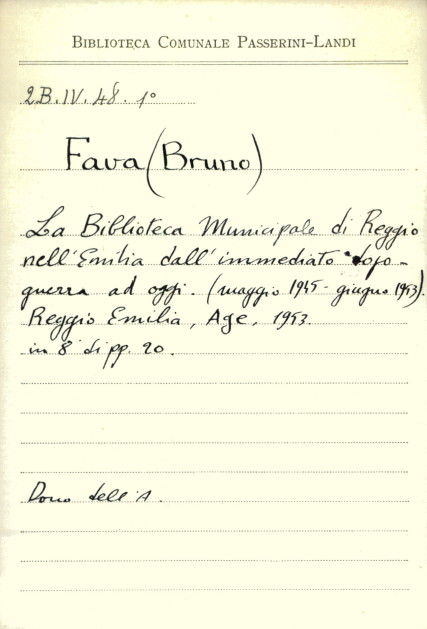 BIBLIOTECA COMUNALE PASSERINI-LANDI
2B.IV.48.1°
Fava (Bruno)
La Biblioteca Municipale di Reggio
nell'Emilia dall'immediato dopo-
guerra ad oggi. (maggio 1945 - giugno 1953).
Reggio Emilia, Age, 1953.
in 8° di pp. 20.
Dono dell'A.